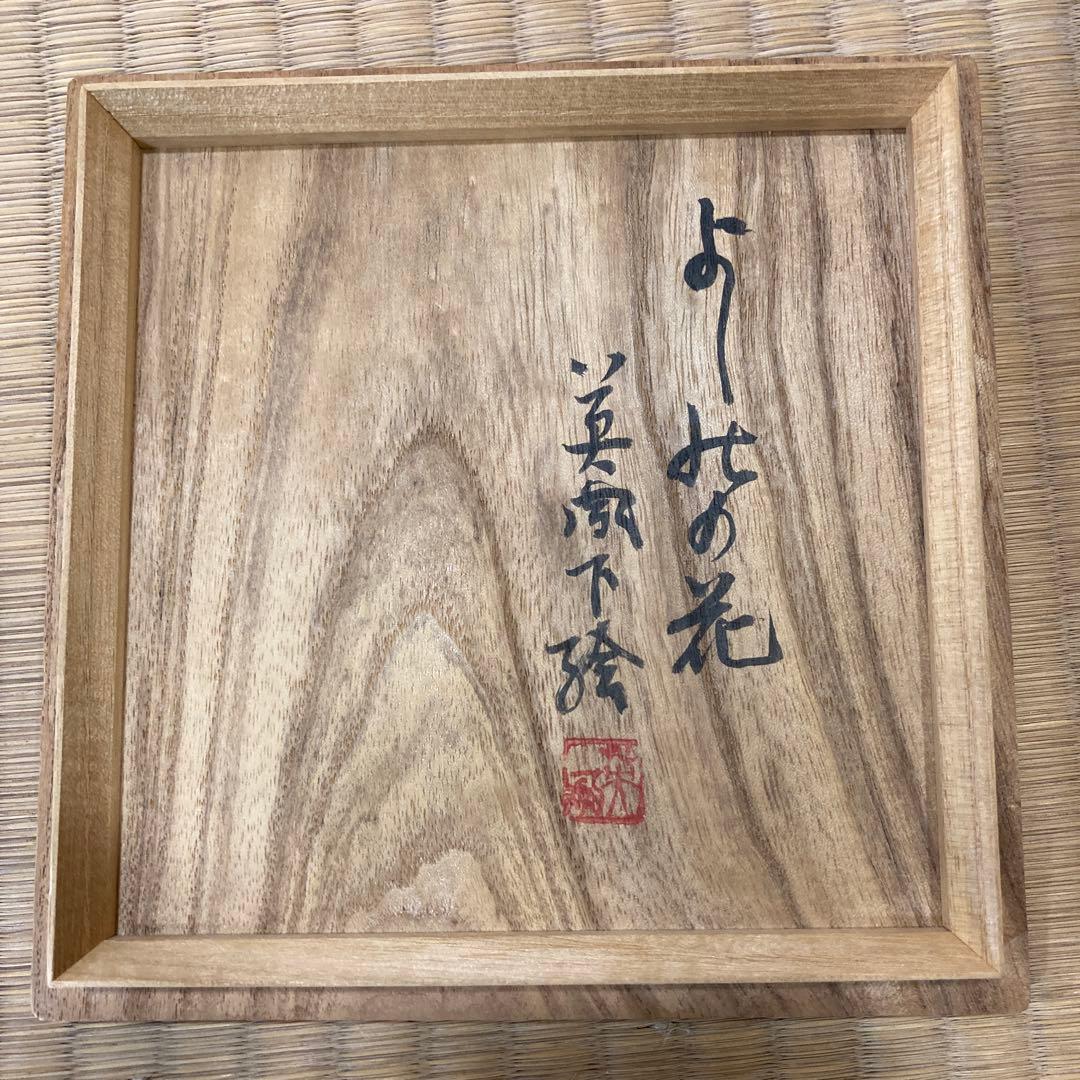 よしのの花
英風下繪